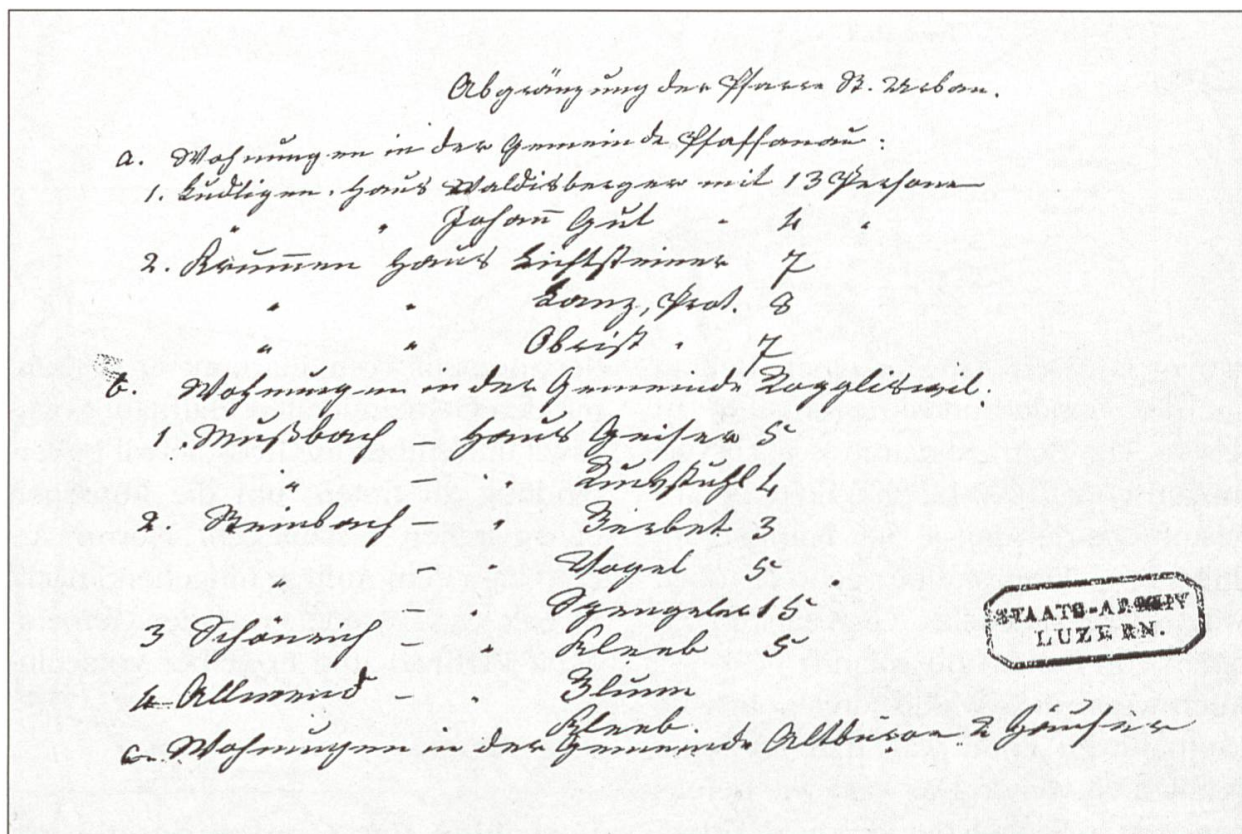 Abgränzung der Pfarre St. Urban.
a. Wohnungen in der Gemeinde Pfaffnau:
1. Ludligen. Haus Waldisberger mit 13 Persone
" " Johan̄ Gut " 4 "
2. Krum̄en Haus Lichtsteiner 7
" " Lanz, Prot. 8
" " Obrist " 7
b. Wohnungen in der Gemeinde Roggliswyl.
1. Mußbach – Haus Geiser 5
" – " Ruckstuhl 4
2. Steinbach – " Zerbet 3
" – " Vogel 5 "
– " Spengeler 15
3 Schöneich " Kleeb 5
4 Allmend – " Blum
Kleeb.
c. Wohnungen in der Gemeinde Altbüron 2 Häuser
STAATS-ARCHIV
LUZERN.